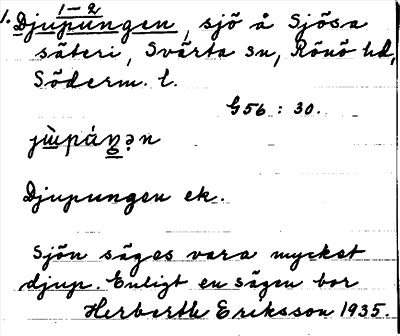 1. Djupungen, sjö å Sjösa
säteri, Svärta sn, Rönö hd,
Söderm. l.
G56 : 30.
Djupungen ek.
Sjön säges vara mycket
djup. Enligt en sägen bor
Herberth Eriksson 1935.